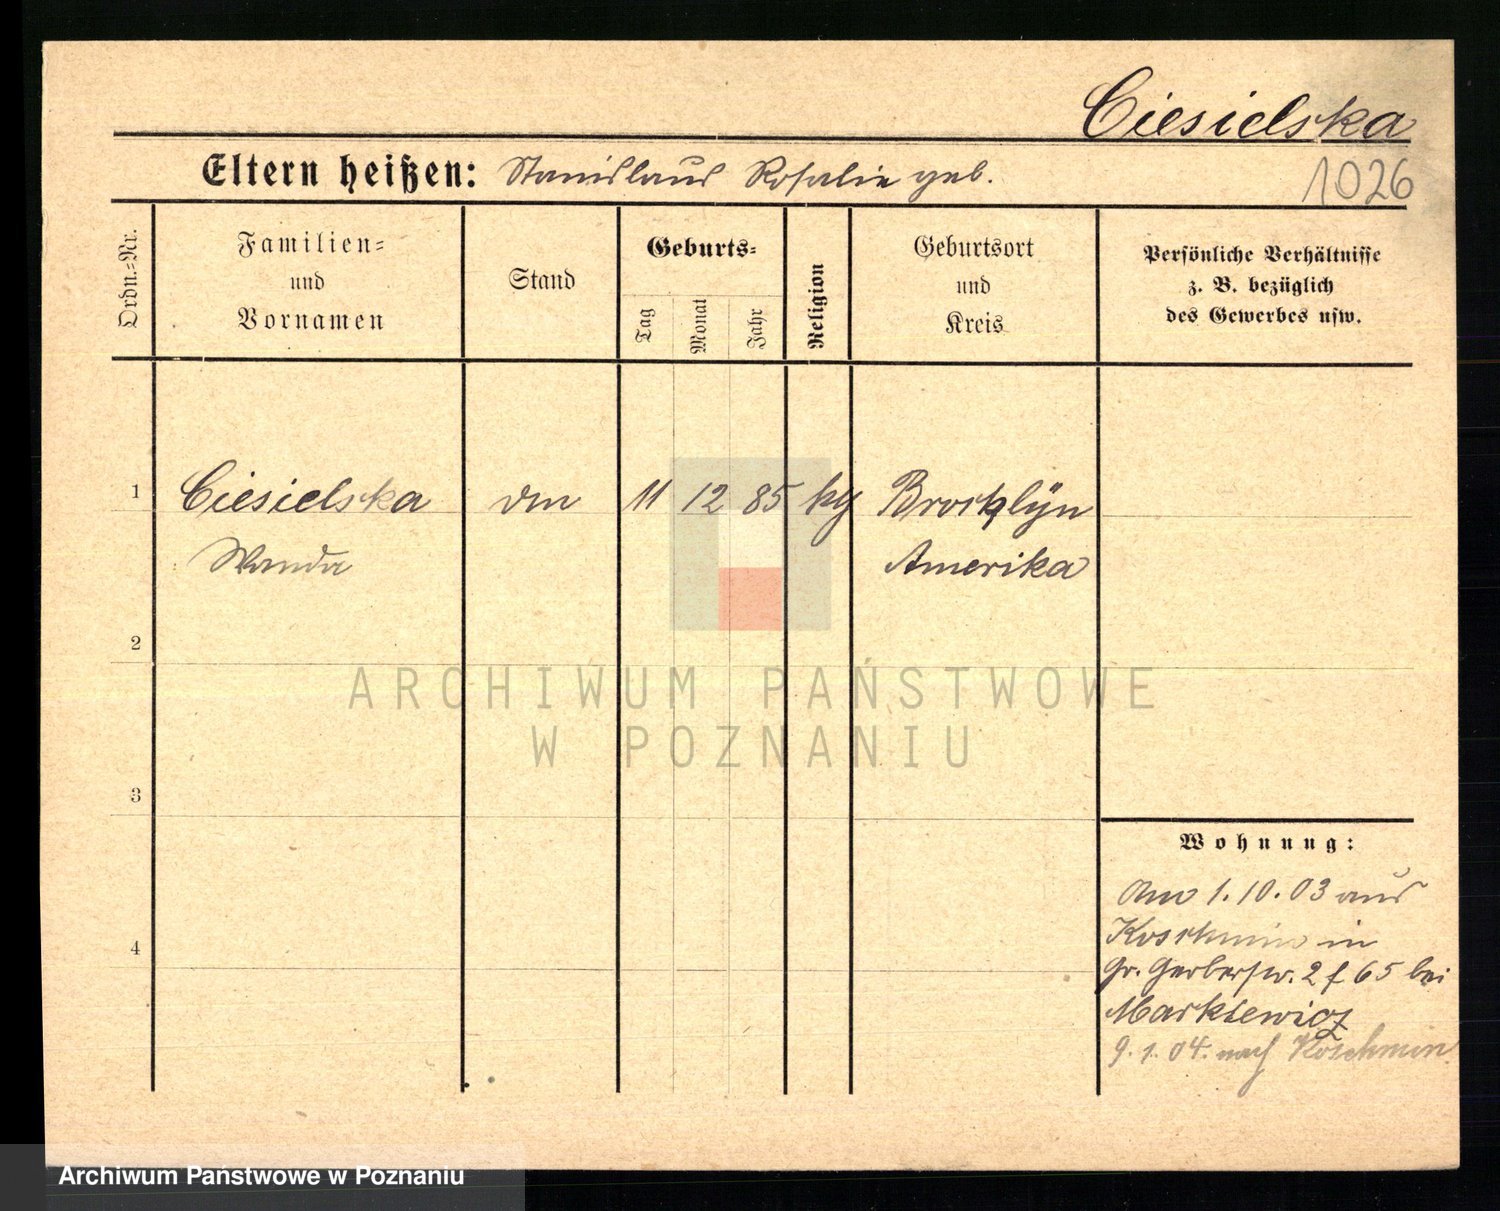 Ciesielska
Eltern heißen: Stanislaus Rosalie geb.
1026
Ordn.-Nr.
Familien-
und
Vornamen
Stand
Geburts-
Tag
Monat
Jahr
Religion
Geburtsort
und
Kreis
Persönliche Verhältnisse
z. B. bezüglich
des Gewerbes usw.
1
Ciesielska 11 12 85 Brooklÿn
Wanda Amerika
2
3
4
Wohnung:
Am 1.10.03 aus
Koschmin in
Gr. Gerberstr. 2 65 bei
Markiewicz
9.1.04. nach Koschmin
ARCHIWUM PAŃSTWOWE
W POZNANIU
Archiwum Państwowe w Poznaniu